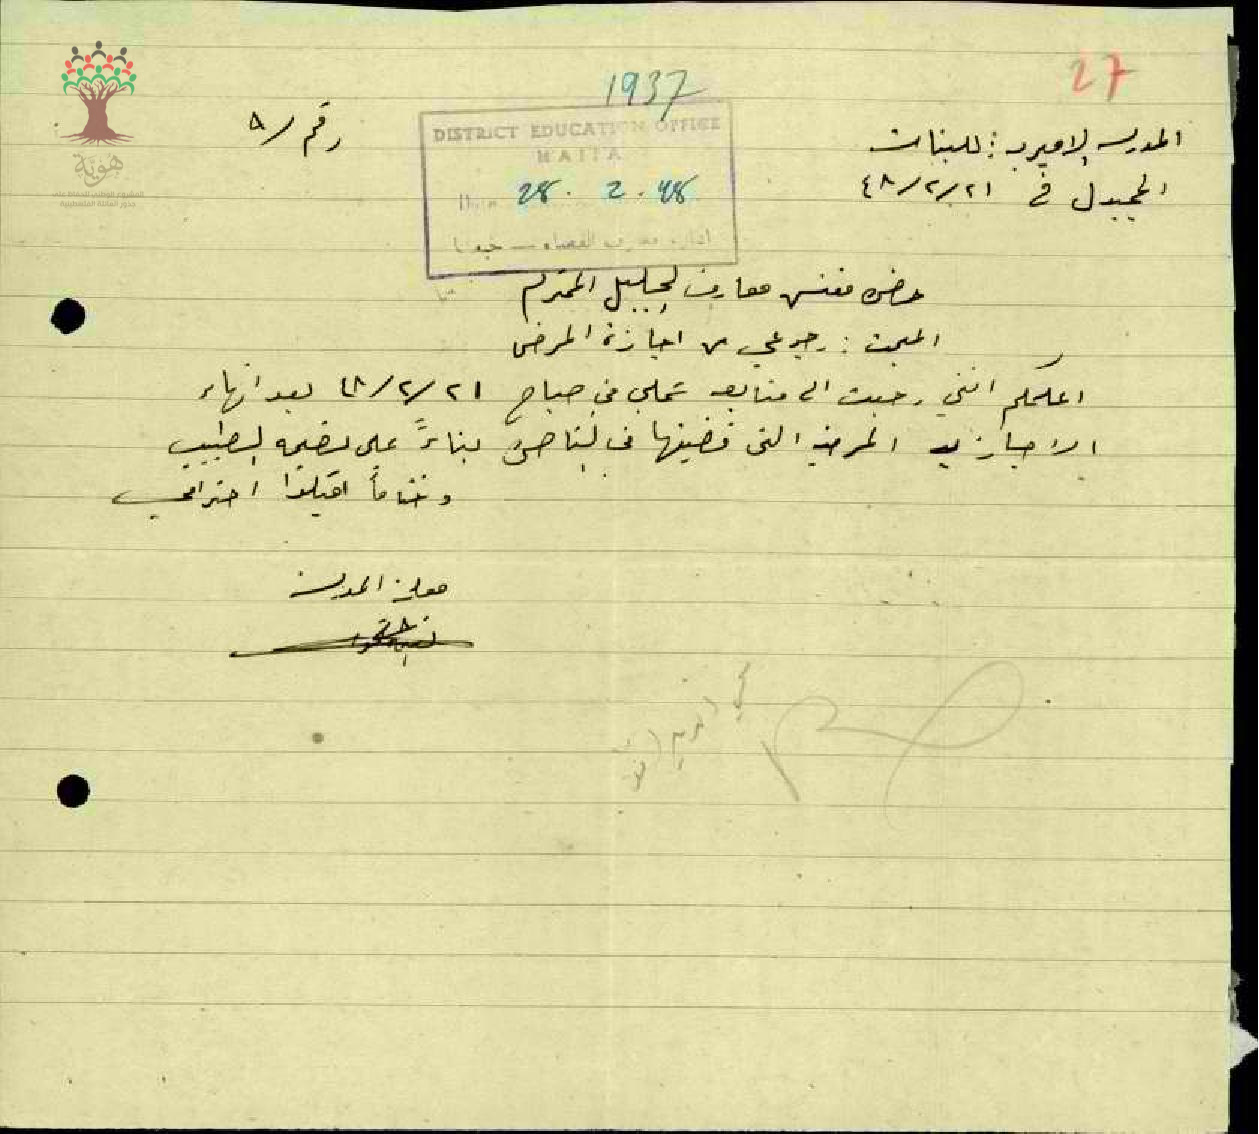 27
1937
المدرسة الاميرية للبنات
رقم / ٨
المجيدل في ٤٨/٢/٢١
DISTRICT EDUCATION OFFICE
HAIFA
Date 28. 2. 48
ادارة معارف القضاء - حيفا
حضرة مفتش معارف الجليل المحترم
المبحث : رجوعي من اجازة المرض
اعلمكم انني رجعت الى متابعة عملي في صباح ٤٨/٢/٢١ بعد انهاء
الاجازة المرضية التي قضيتها في الناصرة بناءً على نصيحة الطبيب
وختاماً اقبلوا احترامي
معلمة المدرسة
هوية